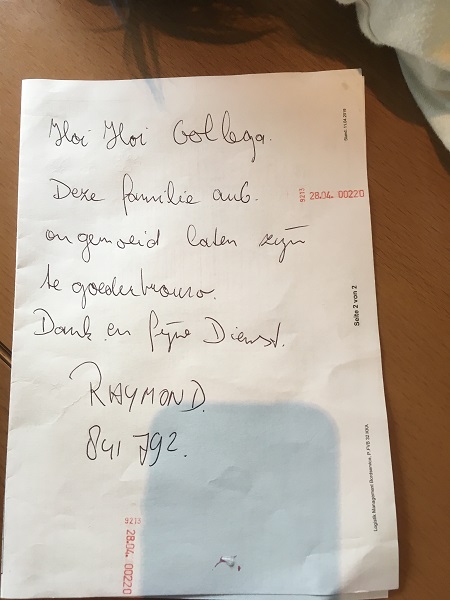 Hoi Hoi Collega.
Deze familie aub.
ongemoeid laten zijn
te goedertrouw.
Dank en fijne Dienst.
RAYMOND.
841792.
9213 28.04. 00220
9213 28.04. 00220
Stand: 11.04.2018
Seite 2 von 2
Logistik Management Bordservice, P.FVB 32 KKA